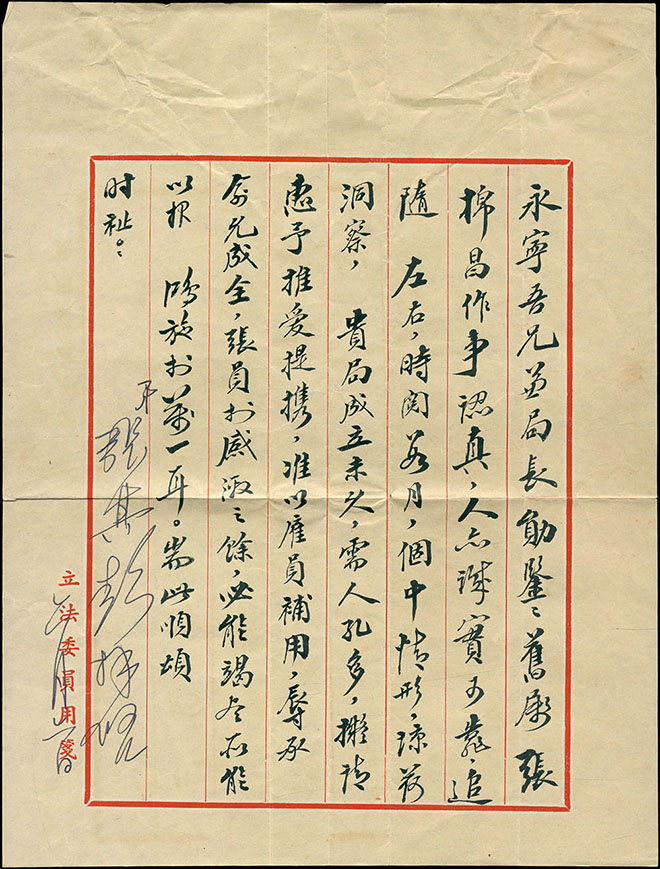 永寧吾兄籌局長勛鑒：舊屬張
棉昌作事認真，人亦誠實可靠，追
隨　左右，時閱数月，個中情形，諒荷
洞察，　貴局成立未久，需人孔多，擬請
惠予推愛提攜，准以雇員補用，辱承
俞允成全，張員於感激之餘，必能竭尽所能
以报　鴻施於萬一耳。耑此順頌
时祉。
弟 張其彭 拜啓
月　日
立法委員用箋